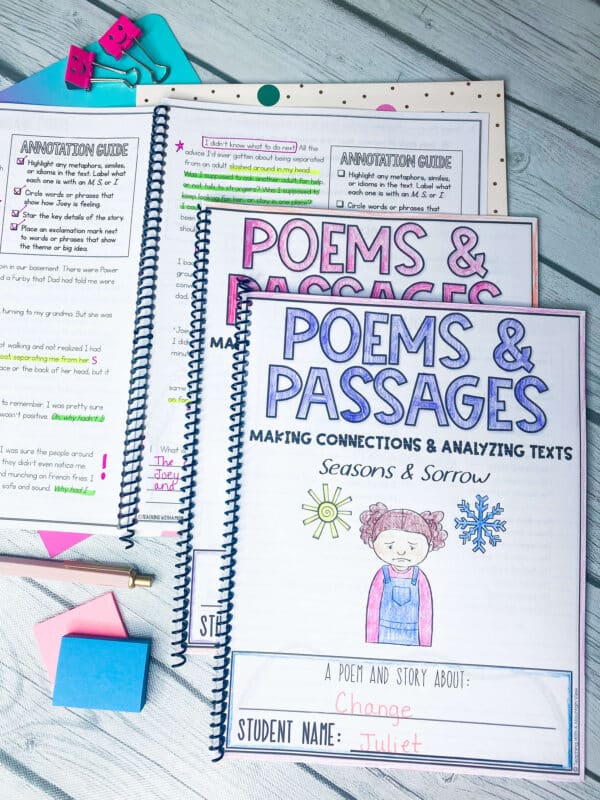 ANNOTATION GUIDE
Highlight any metaphors, similes,
or idioms in the text. Label what
each one is with an M, S, or I.
Circle words or phrases that
show how Joey is feeling.
Star the key details of the story.
Place an exclamation mark next
to words or phrases that show
the theme or big idea.
in our basement. There were Power
a Furby that Dad had told me were
turning to my grandma. But she was
not walking and not realized I had
separating me from her S
ace or the back of her head, but it
to remember. I was pretty sure
wasn't positive. Oh, why hadn't I
I was sure the people around
they didn't even notice me.
and munching on french fries. I
safe and sound. Why had I
I didn't know what to do next. All the
advice I'd ever gotten about being separated
from an adult sloshed around in my head.
Was I supposed to ask another adult for help
or not talk to strangers? Was I supposed to
keep looking for her, or stay in one place?
ANNOTATION GUIDE
Highlight any metaphors, similes,
or idioms in the text. Label what
each one is with an M, S, or I.
Circle words or phrases that
What
The
Joey
and
POEMS &
PASSAGES
POEMS &
PASSAGES
MAKING CONNECTIONS & ANALYZING TEXTS
Seasons & Sorrow
A POEM AND STORY ABOUT:
Change
STUDENT NAME: Juliet